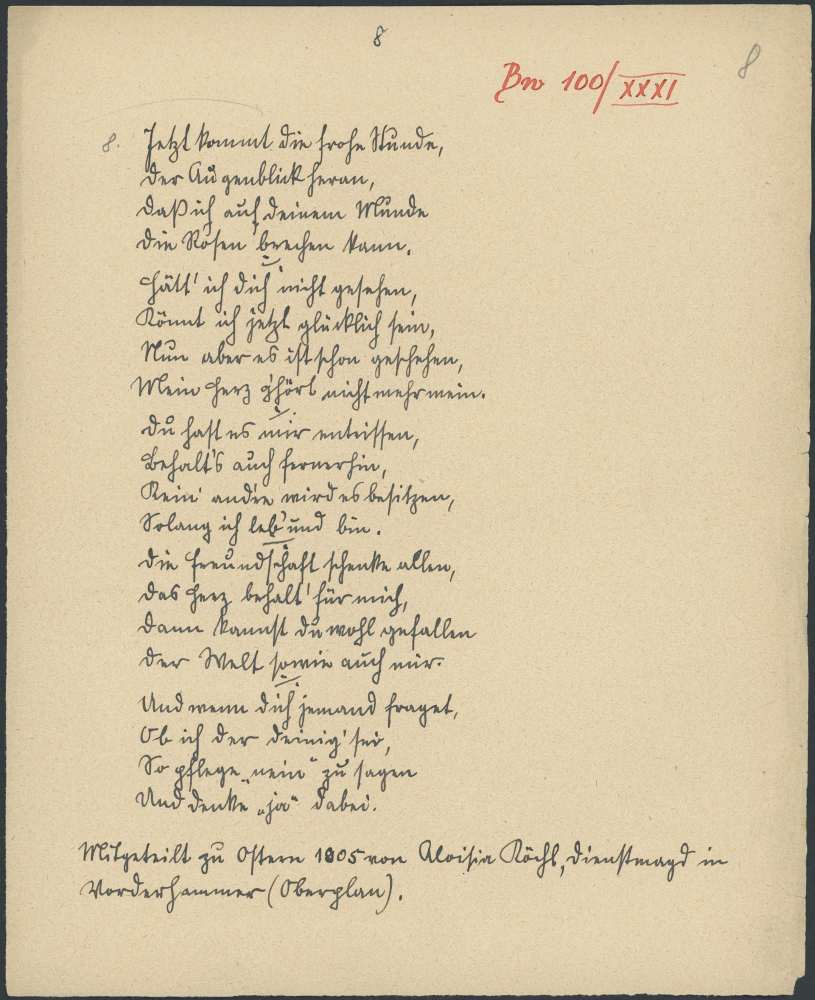 8
8
Bw 100/XXXI
8. Jetzt kommt die frohe Stunde,
Der Augenblick heran,
Daß ich auf deinem Munde
Die Rosen brechen kann.
Hätt' ich dich nicht gesehen,
Könnt ich jetzt glücklich sein,
Nun aber es ist schon geschehen,
Mein Herz g'hört nicht mehr mein.
Du hast es mir entrissen,
Behalt's auch fernerhin,
Kein' andre wird es besitzen,
Solang ich leb' und bin.
Die Freundschaft schenke allen,
Das Herz behalt' für mich,
Dann kannst du wohl gefallen
Der Welt sowie auch mir.
Und wenn dich jemand fraget,
Ob ich der deinig' sei,
So pflege „nein“ zu sagen
Und denke „ja“ dabei.
Mitgeteilt zu Ostern 1905 von Aloisia Köchl, Dienstmagd in
Vorderhammer (Oberplan).